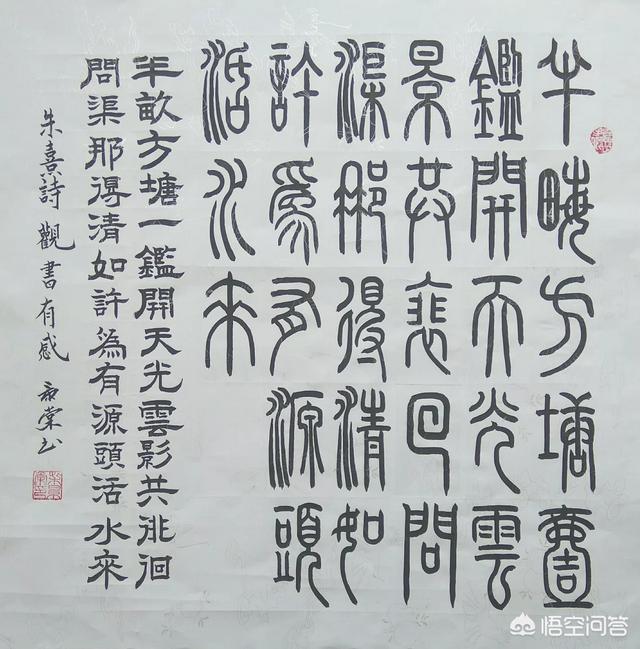 半畮方塘壹
鑑開天光雲
景共裴回問
渠那得清如
許為有源頭
活水來
半畝方塘一鑑開天光雲影共徘徊
問渠那得清如許為有源頭活水來
朱熹詩觀書有感
悟空问答